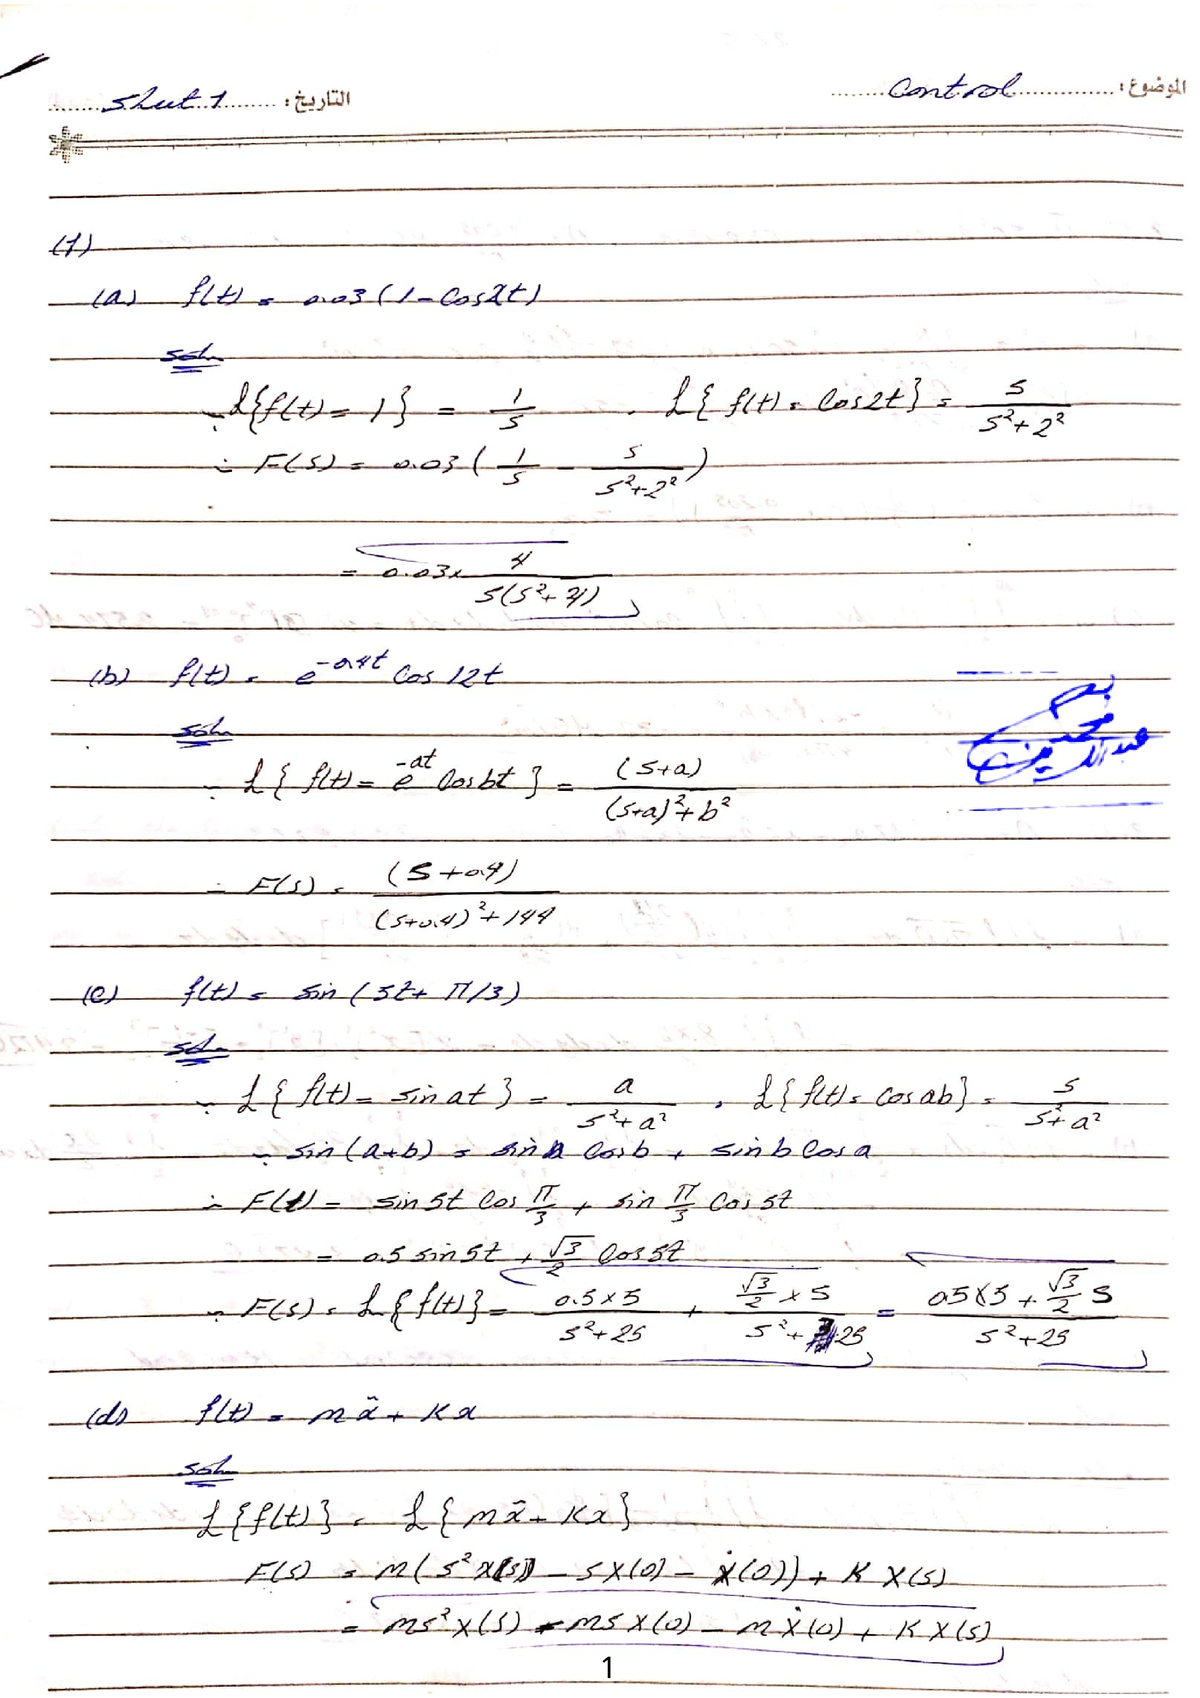 الموضوع : Control
التاريخ : Sheet 1
(1)
(a) f(t) = 0.03 (1 - Cos2t)
Soln
∵ L{f(t) = 1} = 1/s , L{f(t) = Cos2t} = s/(s²+2²)
∴ F(s) = 0.03 (1/s - s/(s²+2²))
= 0.03 x 4/(s(s²+4))
(b) f(t) = e^(-0.4t) Cos 12t
Soln
∵ L{f(t) = e^(-at) Cos bt} = (s+a)/((s+a)²+b²)
∴ F(s) = (s+0.4)/((s+0.4)²+144)
(c) f(t) = sin (5t + π/3)
Soln
∵ L{f(t) = sin at} = a/(s²+a²) , L{f(t) = Cos ab} = s/(s²+a²)
∵ sin (a+b) = sin a Cos b + sin b Cos a
∴ F(t) = sin 5t Cos π/3 + sin π/3 Cos 5t
= 0.5 sin 5t + √3/2 Cos 5t
∵ F(s) = L{f(t)} = (0.5 x 5)/(s²+25) + (√3/2 x s)/(s²+25) = (0.5 x 5 + √3/2 s)/(s²+25)
(d) f(t) = mẍ + Kx
Soln
L{f(t)} = L{mẍ + Kx}
F(s) = m(s²X(s) - sX(0) - Ẋ(0)) + K X(s)
= ms²X(s) - msX(0) - mẊ(0) + K X(s)
1